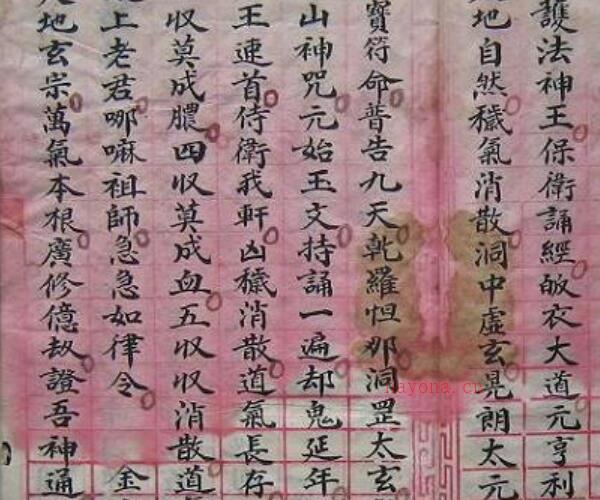 護法神王保衛誦經皈衣大道元亨利
地自然穢氣消散洞中虛玄晃朗太元
寶符命普告九天乾羅怛那洞罡太玄
山神咒元始玉文持誦一遍却鬼延年
王速首侍衛我軒凶穢消散道氣長存
収莫成膿四収莫成血五収収消散道
上老君哪嘛祖師急急如律令 金
地玄宗萬氣本根廣修億劫證吾神通